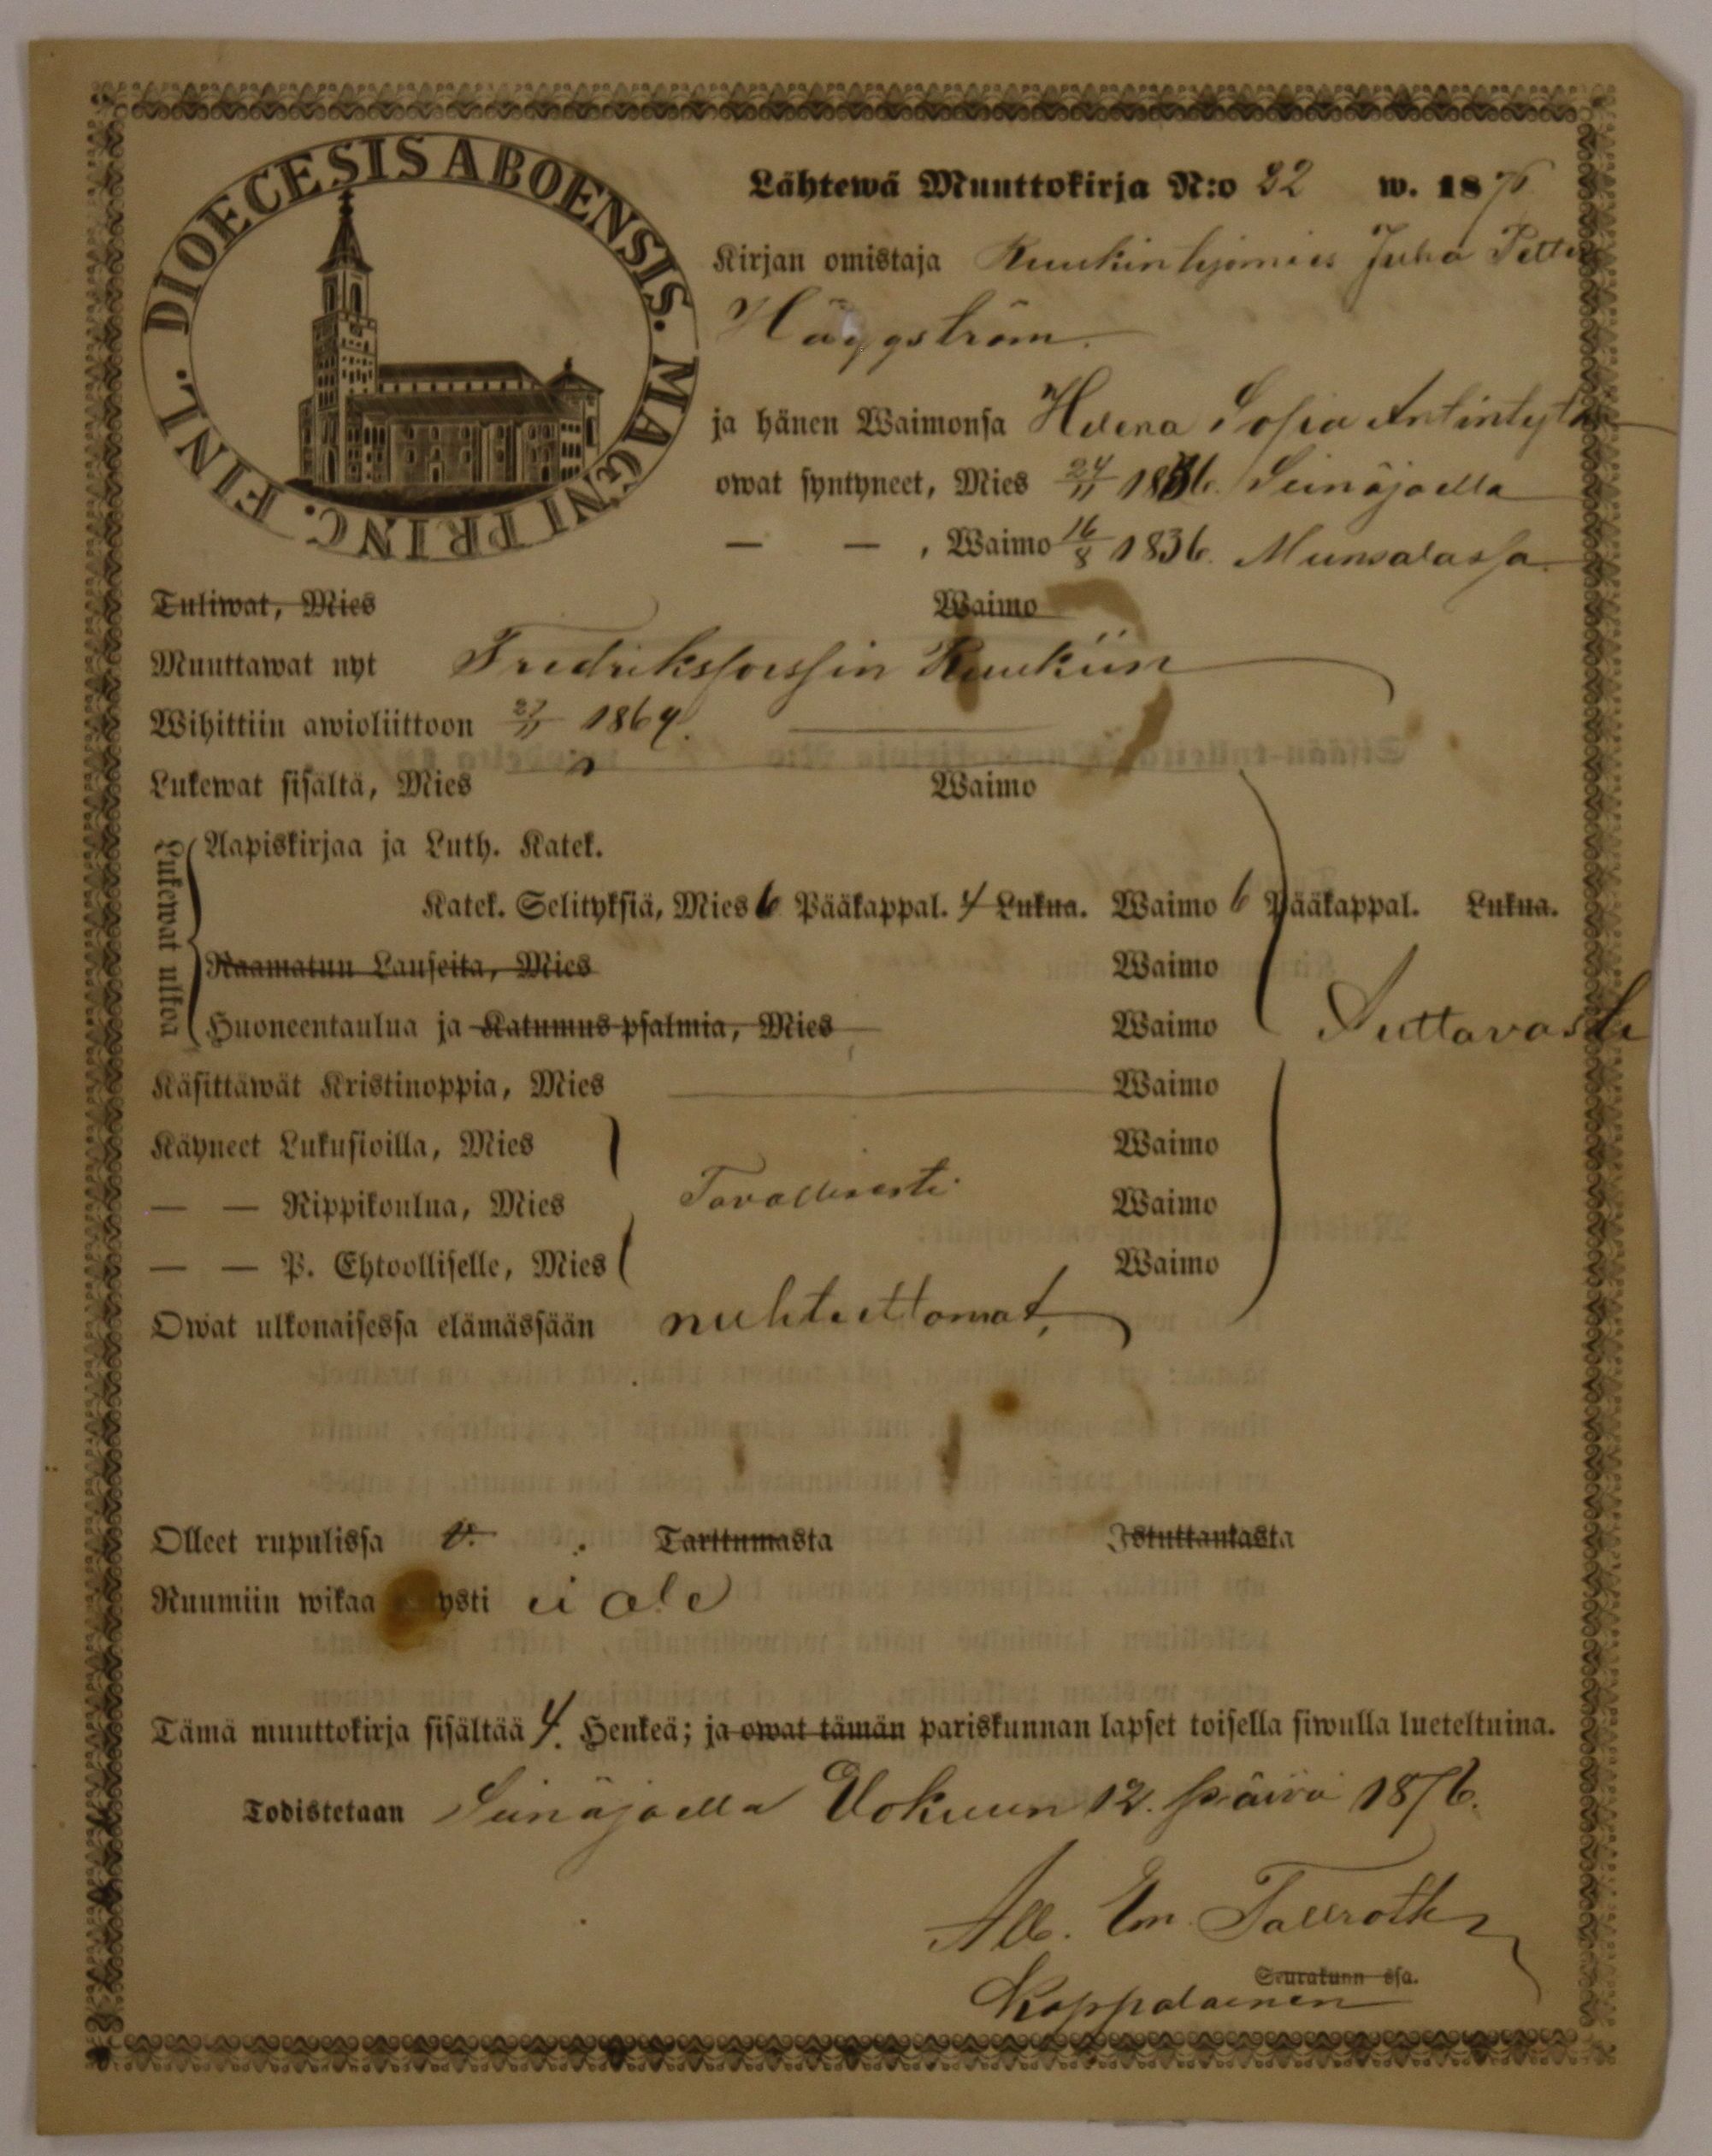 DIOECESIS ABOENSIS. MAGNI PRINC. FINL.
Lähtewä Muuttokirja N:o 32 w. 1876
Kirjan omistaja Ruukin työmies Juha Petter
Häggström.
ja hänen Waimonsa Helena Sofia Antintytär
owat syntyneet, Mies 24/11 1836. Seinäjoella
— — , Waimo 16/8 1836. Munsalassa.
Tuliwat, Mies Waimo
Muuttawat nyt Fredriksforssin Ruukiin
Wihittiin awioliittoon 27/11 1864.
Lukewat sisältä, Mies Waimo
Lukewat ulkoa
Aapiskirjaa ja Luth. Katek.
Katek. Selityksiä, Mies 6 Pääkappal. 4 Lukua. Waimo 6 Pääkappal. Lukua.
Raamatun Lauseita, Mies Waimo
Huoneentaulua ja Katumus-psalmia, Mies Waimo Auttavasti
Käsittäwät Kristinoppia, Mies Waimo
Käyneet Lukusioilla, Mies Waimo
— — Rippikoulua, Mies Tavallisesti Waimo
— — P. Ehtoolliselle, Mies Waimo
Owat ulkonaisessa elämässään nuhteettomat,
Olleet rupulissa v. Tarttumasta Istuttamasta
Ruumiin wikaa ysti ei ole
Tämä muuttokirja sisältää 4. Henkeä; ja owat tämän pariskunnan lapset toisella siwulla lueteltuina.
Todistetaan Seinäjoella Elokuun 12. päivä 1876.
Alb. Em. Tallroth
Seurakunn ssa.
Kappalainen